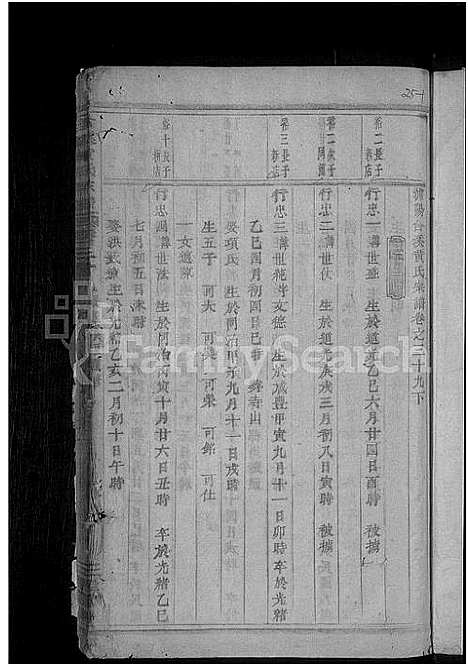 25-1
陽合湊黃氏宗譜卷之三十九下
啓二長子
店
行忠一 諱世盛 生於道光乙巳六月廿四日酉時 被擄
啓二次子
行忠二 諱世 生於道光庚戌三月初八日寅時 被擄
啓三長子
店
行忠三 諱世花 字文德 生於咸豐甲寅九月十一日卯時 卒於光緒
乙巳四月初四日巳時 寺山
娶項氏 生於同治甲子九月十一日戌時
生五子 可大 可美 可 可榮 可仕
一女適陳
啓十長子
店
行忠四 諱世法 生於同治丙寅十月廿六日丑時 卒於光緒乙巳
七月初五日未時
娶洪氏 生於光緒乙亥二月初十日午時
FamilySearch